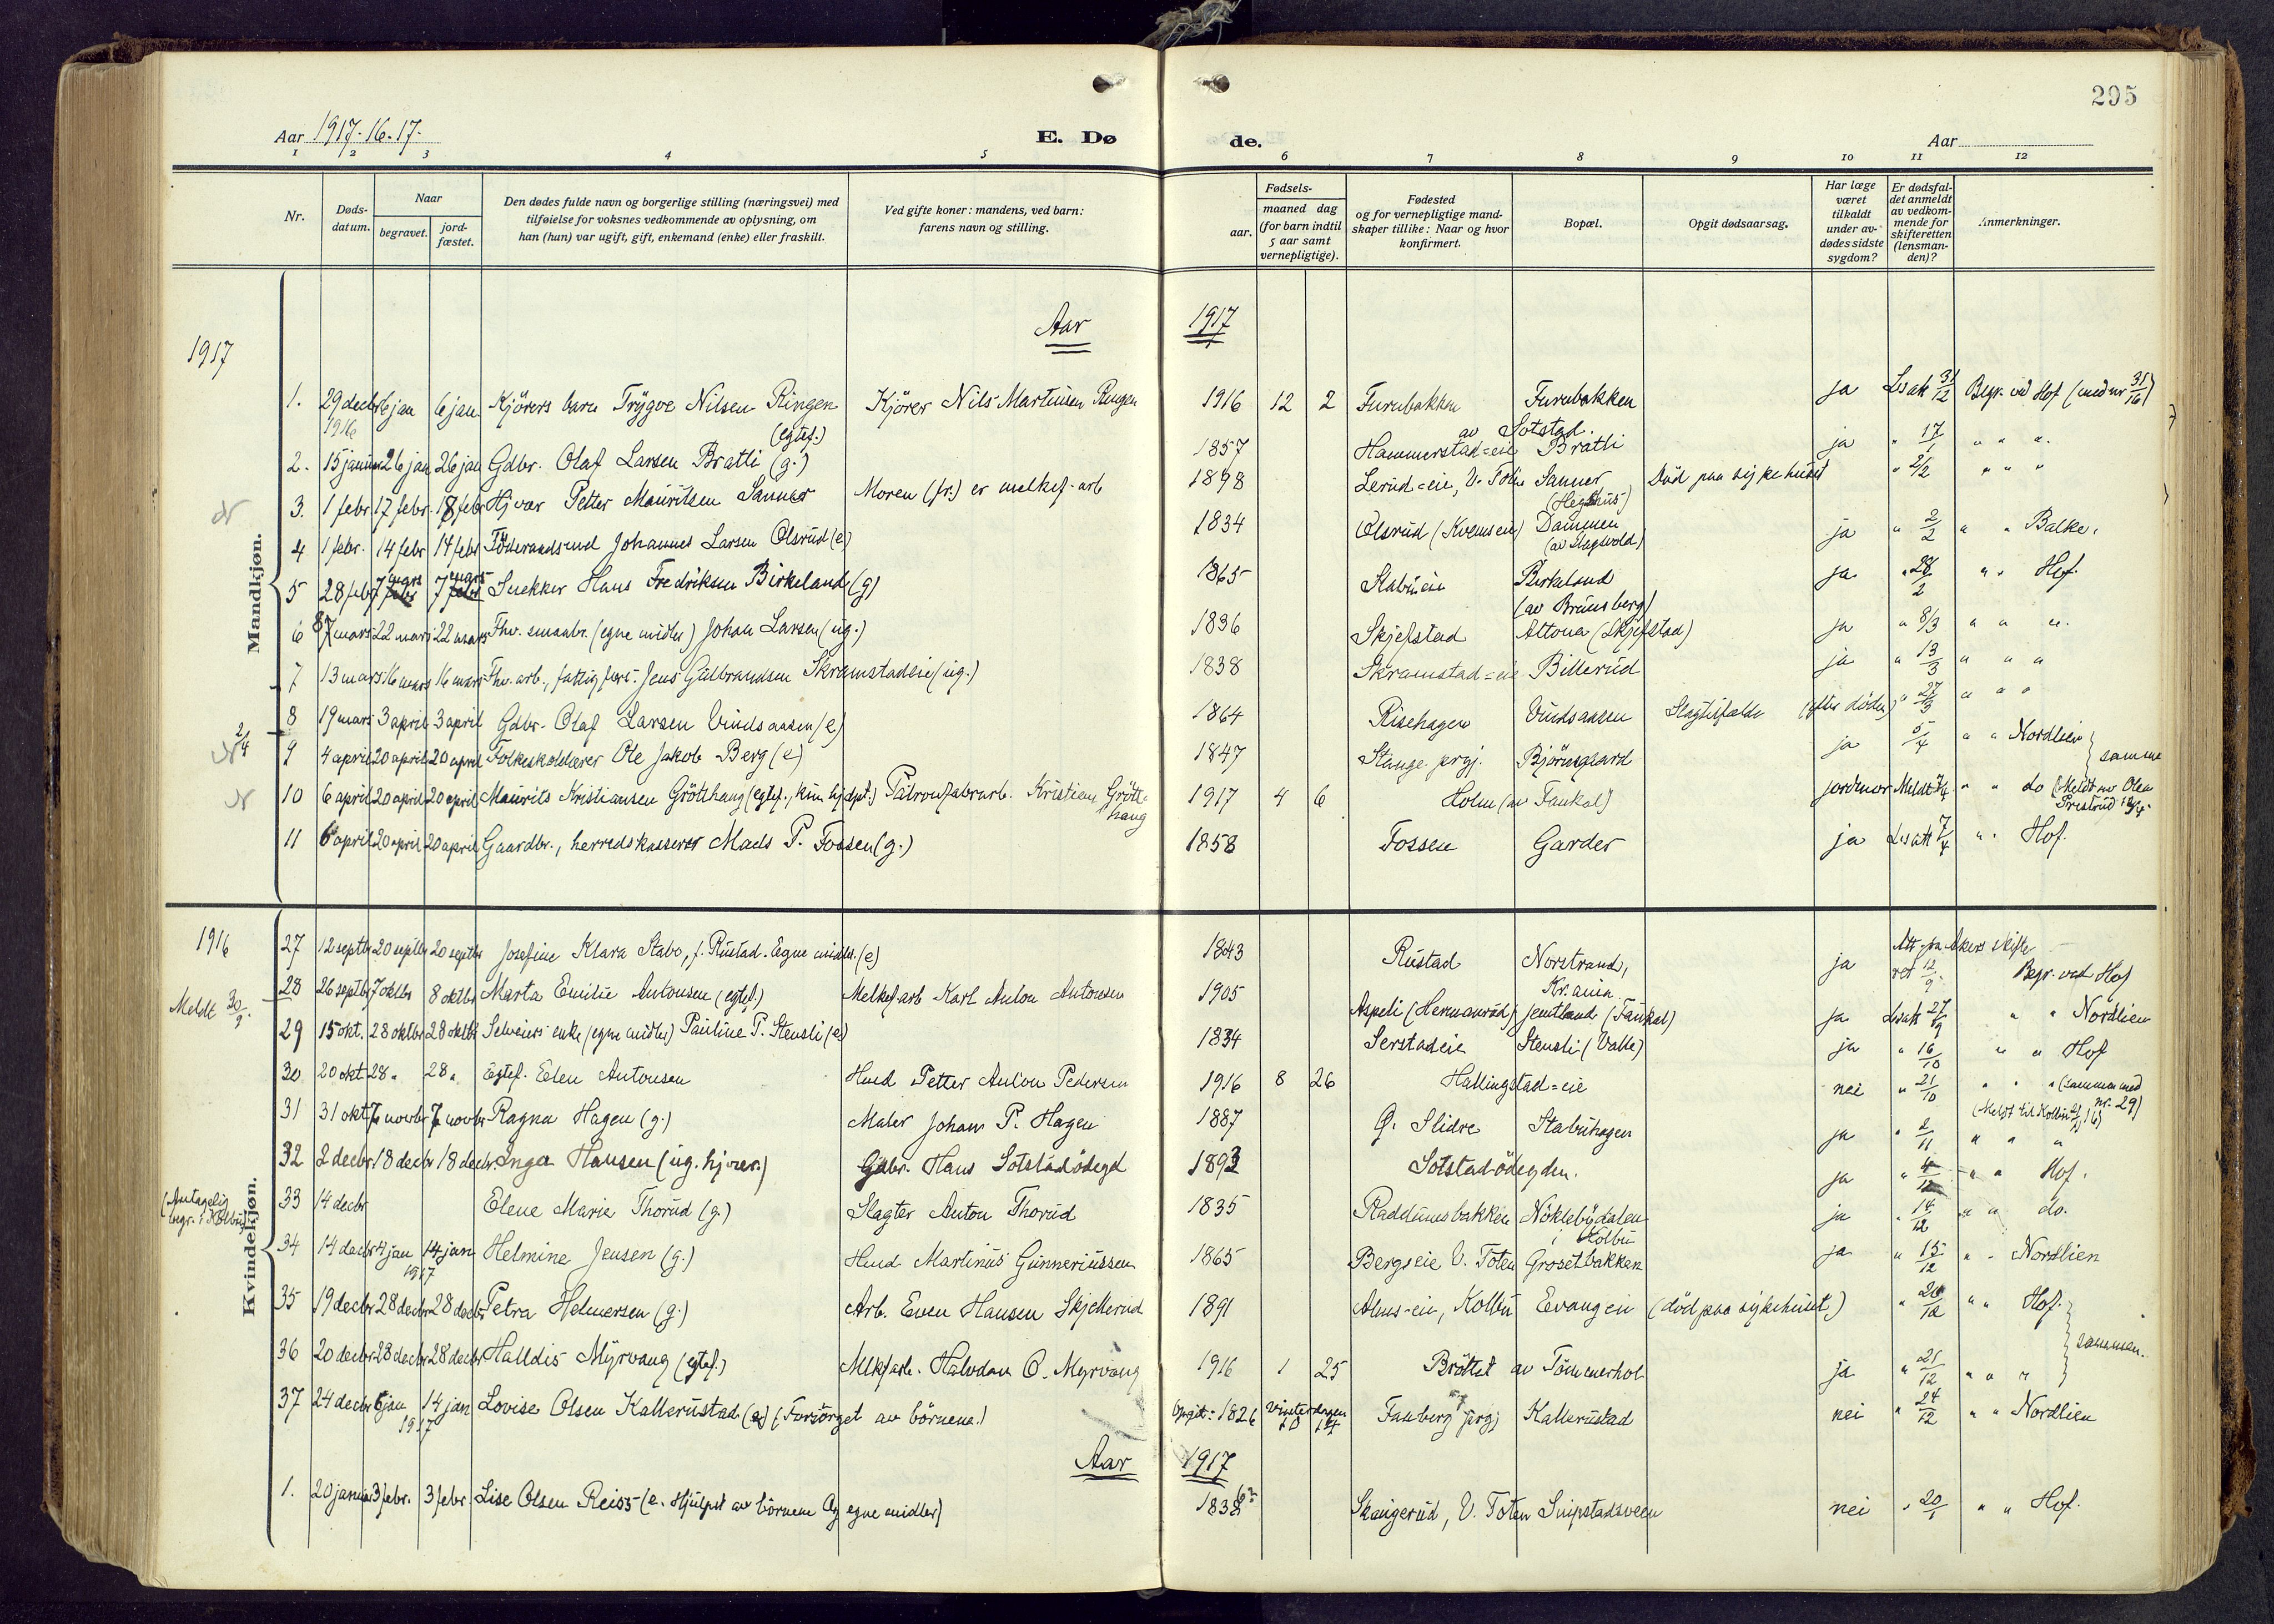 295
Aar 1917-16-17.
E. Dø
de.
Aar
1 2 3 4 5 6 7 8 9 10 11 12
Nr.
Døds-datum.
Naar
begravet.
jord-fæstet.
Den dødes fulde navn og borgerlige stilling (næringsvei) med
tilføielse for voksnes vedkommende av oplysning, om
han (hun) var ugift, gift, enkemand (enke) eller fraskilt.
Ved gifte koner: mandens, ved barn:
farens navn og stilling.
Fødsels-
aar.
maaned dag
(for barn indtil
5 aar samt
vernepligtige).
Fødested
og for vernepligtige mand-
skaper tillike: Naar og hvor
konfirmert.
Bopæl.
Opgit dødsaarsag.
Har læge
været
tilkaldt
under av-
dødes sidste
sygdom?
Er dødsfal-
det anmeldt
av vedkom-
mende for
skifteretten
(lensman-
den)?
Anmerkninger.
Aar 1917
1917
Mandkjøn.
1. 29 decbr 1916 6 jan 6 jan. Kjörers barn Trygve Nilsen Ringen (egtef.) Kjörer Nils Martinsen Ringen 1916 12 2 Furubakken Furubakken av Sotstad. ja Lsatt 31/12 Begr. ved Hof (med nr 35/16)
2. 15 januar 26 jan 26 jan Gdbr. Olaf Larsen Bratli (g.) 1857 Hammerstad=eie Bratli ja " 17/1 " " "
3. 1 febr. 17 febr. 18 febr Petter Mauritsen Sanner Moren (fr.) er melkef-arb 1898 Lerud=eie, V. Toten Sanner (Hegshus) Död paa sykehuset " 2/2 " " "
4 1 febr. 14 febr 14 febr Föderaadsmd Johannes Larsen Olsrud (e) 1834 Olsrud (Kvemsen) Dammen (av Slagsvold) ja " 2/2 " " Balke.
5 28 febr 7 mars 7 mars Snekker Hans Fredriksen Birkeland (g) 1865 Stabueie Birkeland (av Brunsberg) ja " 28/2 " " Hof.
6 8 mars 22 mars 22 mars Fhv. smaabr. (egne midler) Johan Larsen (ug.) 1836 Skjefstad Altona (Skjefstad) ja " 8/3 " " "
7 13 mars 16 mars 16 mars Fhv. arb., fattigfors. Jens Gulbrandsen Skramstadeie (ug.) 1838 Skramstad=eie Billerud ja " 13/3 " " "
8 19 mars 3 april 3 april Gdbr. Olaf Larsen Vindsaasen (e) 1864 Risehagen Vindsaasen Slagtilfælde (efter döden) " 27/3 " " "
9 4 april 20 april 20 april Folkeskolelærer Ole Jakob Berg (e) 1847 Stange prgj. Björnsgaard ja 5/4 " " Nordlien } samme
10 6 april 20 april 20 april Maurits Kristiansen Grötthaug (egtef., kun hj.döpt.) Patronfabrarb. Kristian Grötthaug 1917 4 6 Holm (av Faukal) jordmor Meldt 7/4 " " do (Meldt av Olea Prestrud
11 6 april 20 april 20 april Gaardbr., herredskasserer Mads P. Fossen (g.) 1858 Fossen Garder ja Lsatt 7/4 " " Hof.
1916
Kvindekjøn.
27 12 septbr 20 septbr 20 septbr Josefine Klara Stabo, f. Rustad. Egne midler. (e) 1843 Rustad Norstrand, Kr.ania ja Att. fra Akers skifteret 12/9. Begr. ved Hof
Meldt 30/9.
28 26 septbr 7 oktbr 8 oktbr Marta Emilie Antonsen (egtef.) Melkef.arb Karl Anton Antonsen 1905 Aspeli (Hermanrud) Jemtland (Faukal) ja Lsatt 27/9 " " Nordlien
29 15 okt. 28 oktbr 28 oktbr Selveiers enke (egne midler) Pauline P. Stensli (e) 1834 Serstadeie Stensli (Valle) ja " 16/10 " " Hof
30 20 okt 28 " 28 " Egtef. Elen Antonsen Hmd Petter Anton Pedersen 1916 8 26 Hallingstad=eie nei " 21/10 " " " (sammen med nr. 29)
31 31 okt 7 novbr 7 novbr Ragna Hagen (g.) Maler Johan P. Hagen 1887 Ø. Slidre Stabuhagen ja " 2/11 " " " (Meldt til Kolbu
32 2 decbr 18 decbr 18 decbr Inga Hansen (ug. hjver.) Gdbr. Hans Sotstadödegd 1893 Sotstadödegden. ja " 4/12 " " Hof.
(Antagelig begr. i Kolbu)
33 14 decbr Elene Marie Thorud (g.) Slagter Anton Thorud 1835 Raddumsbakken Nöklebydalen i Kolbu ja " 14/12 " " do.
34 14 decbr 4 jan 1917 14 jan Helmine Jensen (g.) Hmd Martinus Gunneriussen 1865 Bergseie V. Toten Grosetbakken ja " 15/12 " " Nordlien
35 19 decbr 28 decbr 28 decbr Petra Helmersen (g.) Arb. Even Hansen Skjellerud 1891 Alms=eie, Kolbu Evangeie (död paa sykehuset) " 20/12 " " Hof.
36 20 decbr 28 decbr 28 decbr Halldis Myrvang (egtef.) Mlkfarb. Halvdan O. Myrvang 1916 1 25 Bröttet av Tömmerhol ja " 21/12 " " " } sammen.
37 24 decbr 6 jan 1917 14 jan Lovise Olsen Kallerustad (e) (Forsörget av börnene.) Opgit: 1826 vinterdagen 10 14 Fauberg prgj Kallerustad nei " 24/12 " " Nordlien
Aar 1917
1. 20 januar 3 febr. 3 febr. Lise Olsen Reiss (e. Hjulpet av börnene Og egne midler) 1838 Skaugerud, V. Toten Snipstadsveen nei " 20/1 " " Hof.